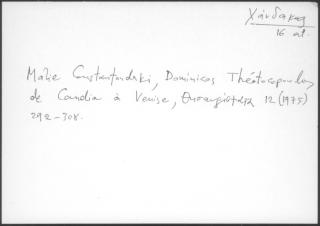 Χάνδακας
16 αι.
Marie Constantoudaki, Dominicos Théotocopoulos
de Candia à Venise, Θησαυρίσματα 12 (1975)
292-308.